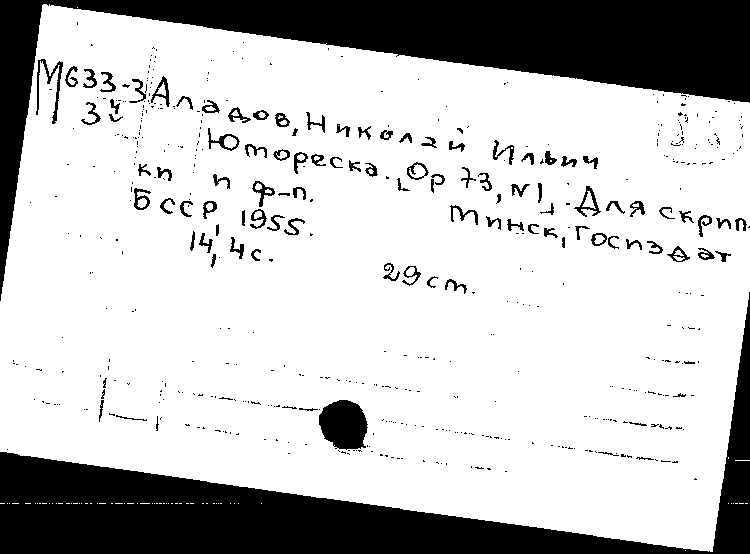 М633-3 Аладов, Николай Ильич
3ч Юмореска. Ор 73, N1. Для скрип-
ки и ф-п. Минск, Госиздат
БССР, 1955.
14, 4 с. 29 см.